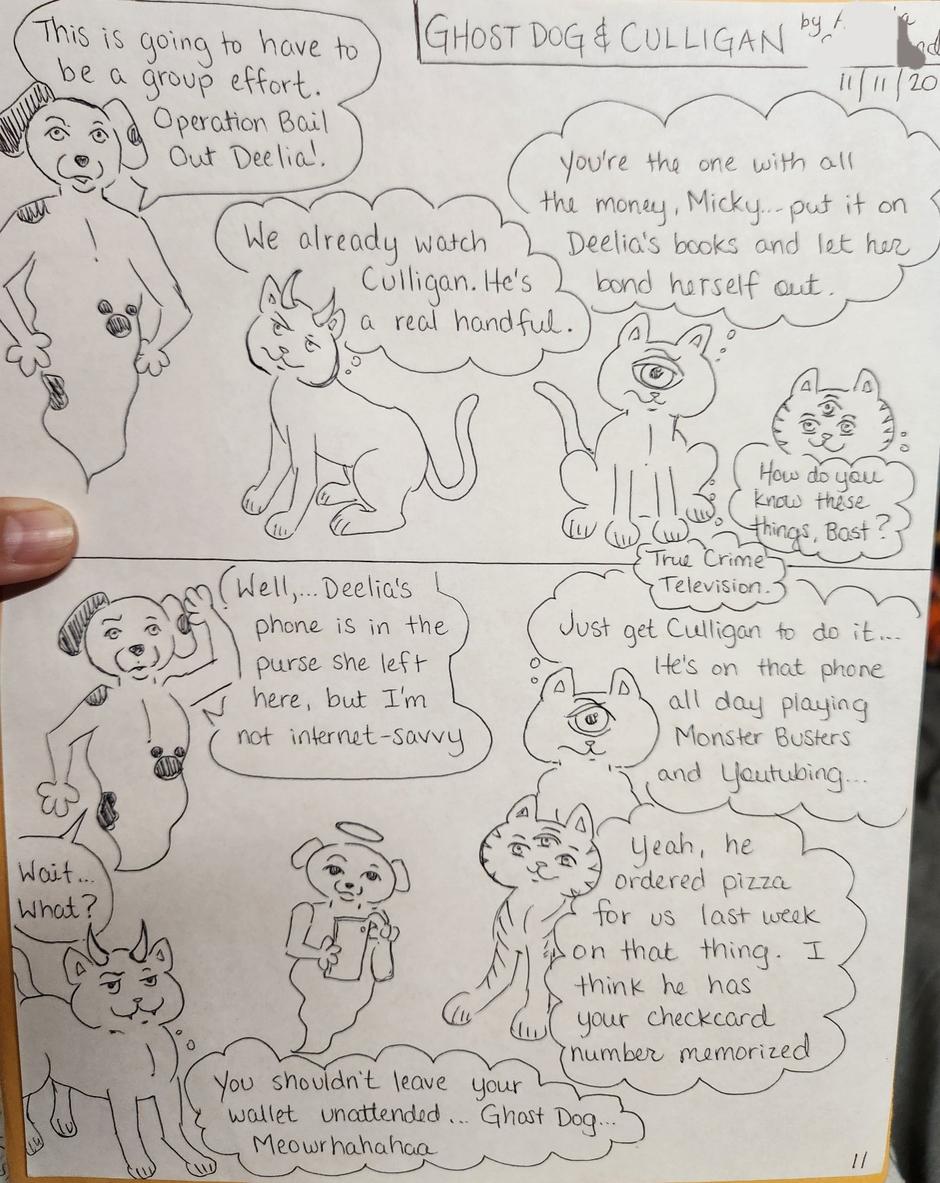 This is going to have to
be a group effort.
Operation Bail
Out Deelia!
GHOST DOG & CULLIGAN by
11/11/20
We already watch
Culligan. He's
a real handful.
You're the one with all
the money, Micky... put it on
Deelia's books and let her
bond herself out.
How do you
know these
things, Bast?
True Crime
Television.
Well,... Deelia's
phone is in the
purse she left
here, but I'm
not internet-savvy
Just get Culligan to do it...
He's on that phone
all day playing
Monster Busters
and Youtubing...
Wait...
What?
Yeah, he
ordered pizza
for us last week
on that thing. I
think he has
your checkcard
number memorized
You shouldn't leave your
wallet unattended... Ghost Dog...
Meowrhahahaa
11